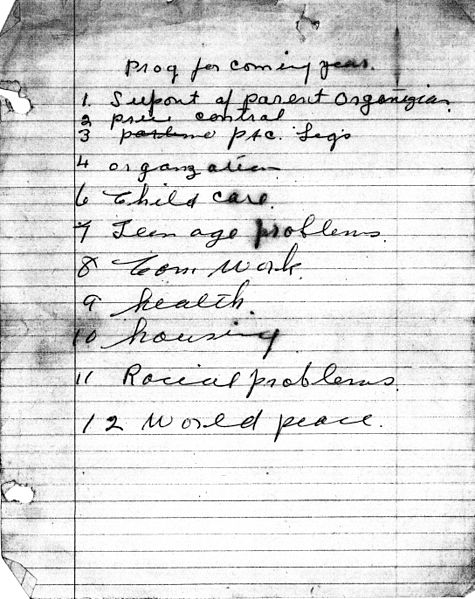 Prog for coming year.
1. Support of parent Organization
2 price control
3 PAC. Legs
4 organzation
6 Child care.
7 Teen age problems.
8 Com Work.
9 health.
10 housing
11 Racial problems.
12 World peace.